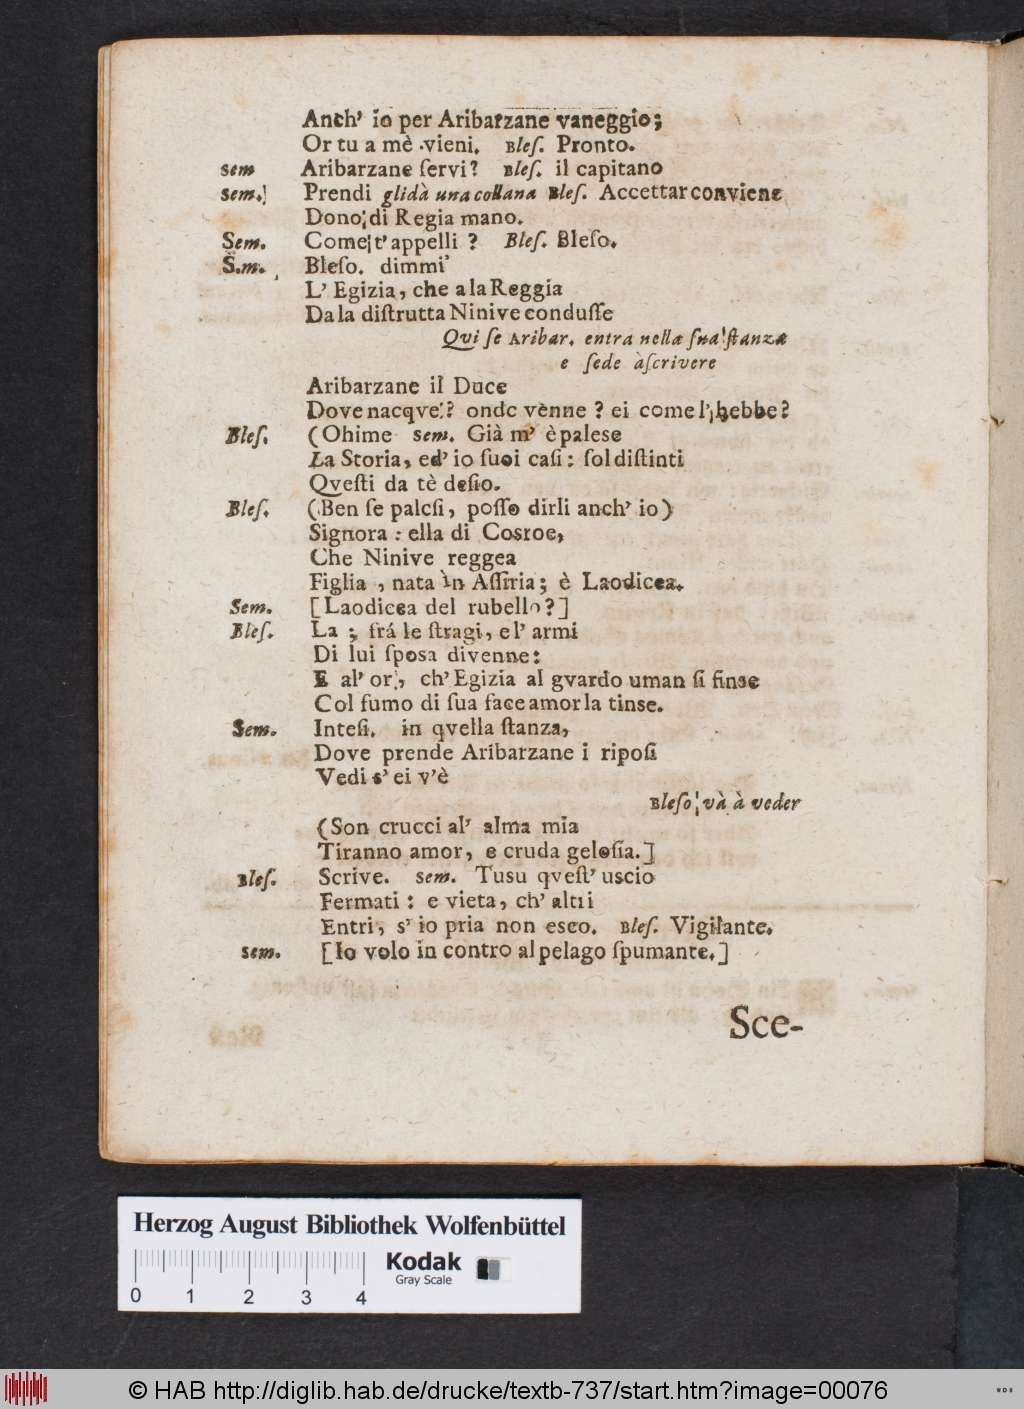 Anch' io per Aribarzane vaneggio;
Or tu a mè vieni. Bleſ. Pronto.
sem Aribarzane ſervi? Bleſ. il capitano
sem. Prendi glidà una collana Bleſ. Accettar conviene
Dono di Regia mano.
Sem. Come t' appelli ? Bleſ. Bleſo.
S.m. Bleſo. dimmi'
L' Egizia, che a la Reggia
Da la diſtrutta Ninive conduſſe
Qvi ſe Aribar. entra nella ſna ſtanza
e ſede àſcrivere
Aribarzane il Duce
Dove nacqve? onde vènne ? ei come l' hebbe?
Bleſ. (Ohime sem. Già m' è paleſe
La Storia, ed' io ſuoi caſi: ſol diſtinti
Qveſti da tè deſio.
Bleſ. (Ben ſe palcſi, poſſo dirli anch' io)
Signora : ella di Cosroe,
Che Ninive reggea
Figlia , nata ìn Aſſiria; è Laodicea.
Sem. [Laodicea del rubello?]
Bleſ. La ; frá le ſtragi, e l' armi
Di lui ſposa divenne:
E al' or, ch' Egizia al gvardo uman ſi finse
Col fumo di ſua face amor la tinse.
Sem. Inteſi. in qvella ſtanza,
Dove prende Aribarzane i ripoſi
Vedi s' ei v'è
Bleſo và à veder
(Son crucci al' alma mia
Tiranno amor, e cruda geloſia.]
Bleſ. Scrive. sem. Tusu qveſt' uscio
Fermati : e vieta, ch' altri
Entri, s' io pria non esco. Bleſ. Vigilante.
sem. [Io volo in contro al pelago ſpumante.]
Sce-
Herzog August Bibliothek Wolfenbüttel
Kodak
Gray Scale
0 1 2 3 4
© HAB http://diglib.hab.de/drucke/textb-737/start.htm?image=00076